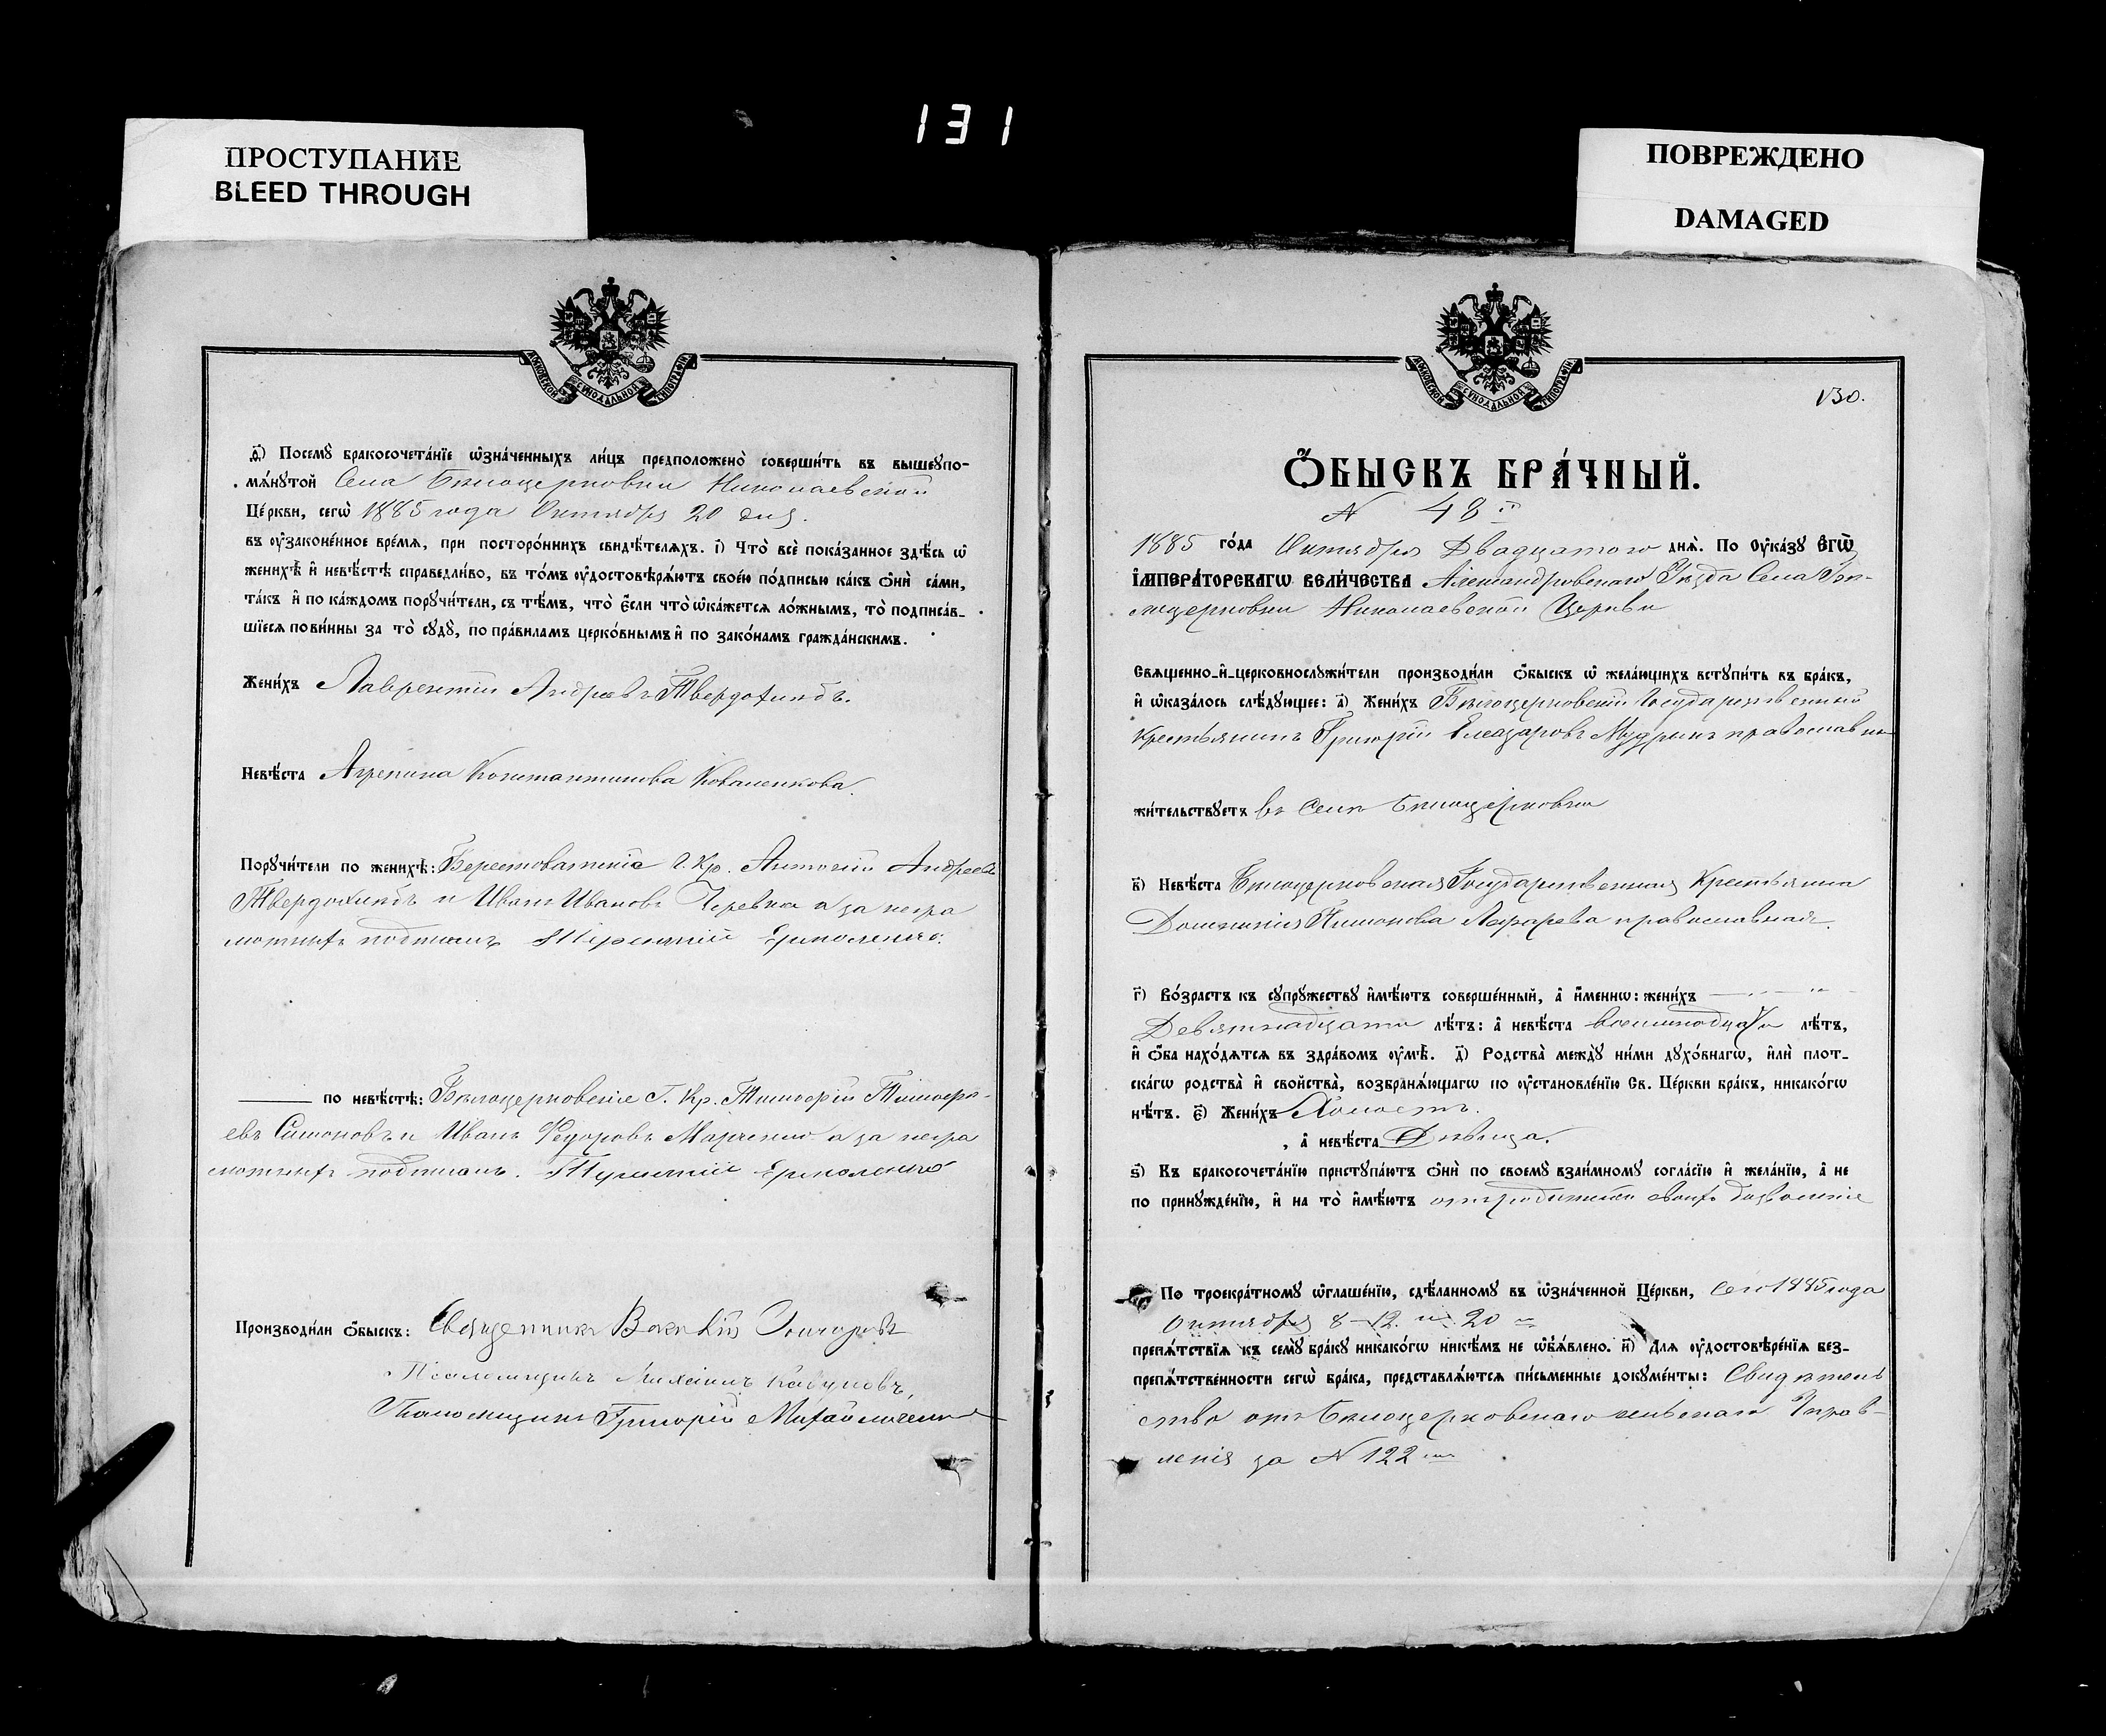 131
ПРОСТУПАНИЕ
BLEED THROUGH
ПОВРЕЖДЕНО
DAMAGED
МОСКОВСКОЙ СѴНОДАЛЬНОЙ ТИПОГРАФІИ
ѳ҃) Посемꙋ̀ бракосочета́нїе ѡ҆зна́ченныхъ ли́цъ предположено̀ соверши́ть въ вышеꙋпо-
мѧ́нꙋтой Села Бѣлоцерковки Николаевской
Це́ркви, сегѡ̀ 1885 года Октября 20 дня.
въ ᲂу҆зако́ненное вре́мѧ, при посторо́ннихъ свидѣ́телѧхъ. і҃) Что̀ всѐ пока́занное здѣ́сь ѡ҆
женихѣ̀ и҆ невѣ́стѣ справедли́во, въ то́мъ ᲂу҆достовѣрѧ́ютъ свое́ю по́дписью ка́къ ѻ҆нѝ са́ми,
та́къ и҆ по ка́ждомъ порꙋчи́тели, съ тѣ́мъ, что̀ є҆́сли что̀ ѡ҆ка́жетсѧ ло́жнымъ, то̀ подписа́в-
шїесѧ пови́нны за то̀ сꙋдꙋ̀, по пра́виламъ церко́внымъ и҆ по зако́намъ гражда́нскимъ.
Жени́хъ Лаврентій Андреевъ Твердохлѣбъ.
Невѣ́ста Агрепина Константинова Коваленкова.
Порꙋчи́тели по женихѣ̀: Берестоватскіе Г. Кр. Антоній Андреевъ
Твердохлѣбъ и Иванъ Ивановъ Черевко а за негра
мотныхъ подписалъ Терентій Ермоленко.
по невѣ́стѣ: Бѣлоцерковскіе Г. Кр. Тимофій Тимофе-
евъ Симоновъ и Иванъ Федоровъ Марченко а за негра
мотныхъ подписалъ. Терентій Ермоленко
Производи́ли ѻ҆́быскъ: Священникъ Гончаровъ
Псаломщикъ Михаилъ Кавуновъ,
Псаломщикъ Григорій
130.
Ѻ҆́БЫСКЪ БРА́ЧНЫЙ.
N 48й
1885 го́да Октября Двадцатого днѧ̀. По ᲂу҆ка́зꙋ є҆гѡ̀
і҆мпера́торскагѡ вели́чества Александровскаго Уѣзда Села Бѣ-
лоцерковки Николаевской Церкви
Свѧще́нно-и҆-церковнослꙋжи́тели производи́ли ѻ҆́быскъ ѡ҆ жела́ющихъ встꙋпи́ть въ бра́къ,
и҆ ѡ҆каза́лось слѣ́дꙋющее: а҃) Жени́хъ Бѣлоцерковскій Государственный
Крестьянинъ Григорій Елеазаровъ Мудрикъ православный
жи́тельствꙋетъ въ Селѣ Бѣлоцерковки
в҃) Невѣ́ста Бѣлоцерковская Государственная Крестьянка
Домникія Лазарева православная.
г҃) Во́зрастъ къ сꙋпрꙋ́жествꙋ и҆мѣ́ютъ соверше́нный, а҆ и҆́меннѡ: жени́хъ
Девятнадцати лѣ́тъ: а҆ невѣ́ста восемнадцати лѣ́тъ,
и҆ ѻ҆́ба нахо́дѧтсѧ въ здра́вомъ ᲂу҆мѣ̀. д҃) Родства̀ междꙋ̀ ни́ми дꙋхо́внагѡ, и҆лѝ плот-
ска́гѡ родства̀ и҆ свойства̀, возбранѧ́ющагѡ по ᲂу҆становле́нїю Св. Це́ркви бра́къ, никако́гѡ
нѣ́тъ. є҃) Жени́хъ Холостъ.
, а҆ невѣ́ста Дѣвица.
ѕ҃) Къ бракосочета́нїю пристꙋпа́ютъ ѻ҆нѝ по своемꙋ̀ взаи́мномꙋ согла́сїю и҆ жела́нїю, а҆ не
по принꙋжде́нїю, и҆ на то̀ и҆мѣ́ютъ отъ родителей своихъ дозволеніе
По троекра́тномꙋ ѡ҆глаше́нїю, сдѣ́ланномꙋ въ ѡ҆зна́ченной Це́ркви, сего 1885 года
Октября 8 – 12. и 20 –
препѧ́тствїѧ къ семꙋ̀ бра́кꙋ никако́гѡ никѣ́мъ не ѡ҆бъѧ́влено. и҃) Длѧ ᲂу҆достовѣре́нїѧ без-
препѧ́тственности сегѡ̀ бра́ка, представлѧ́ютсѧ пи́сьменные докꙋме́нты: Свидѣтель
ство отъ Бѣлоцерковскаго сельскаго Управ-
ленія за N 122